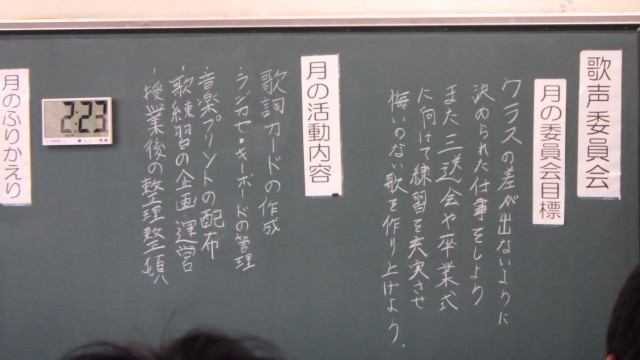 歌声委員会
月の委員会目標
クラスの差が出ないように
決められた仕事をしよう
また三送会や卒業式
に向けて練習を充実させ
悔いのない歌を作り上げよう.
月の活動内容
・歌詞カードの作成
・ラジカセ・キーボードの管理
・音楽プリントの配布
・歌練習の企画・運営
・授業後の整理整頓
2:23
月のふりかえり